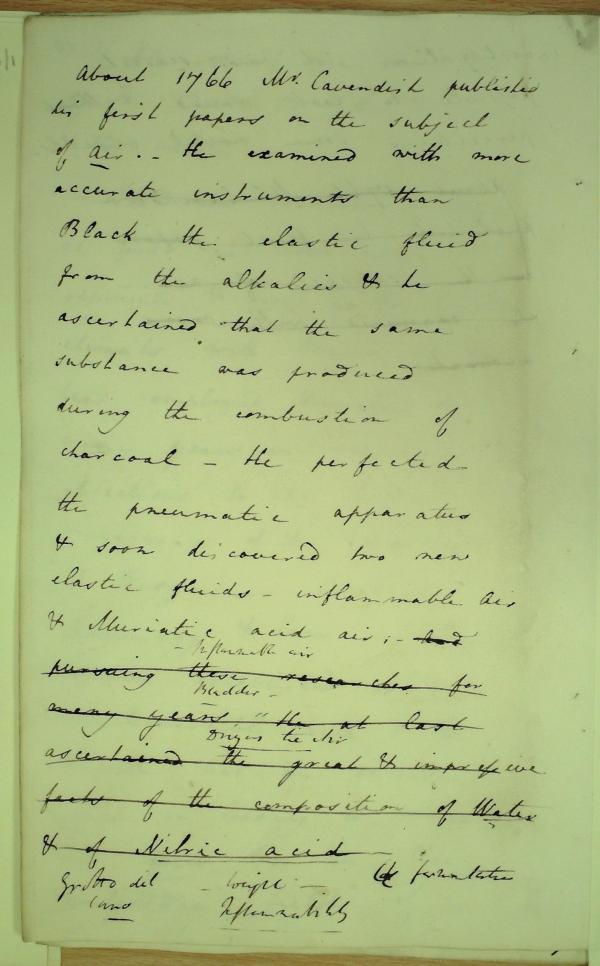 About 1766 Mr. Cavendish published
his first papers on the subject
of air. - He examined with more
accurate instruments than
Black the elastic fluid
from the alkalies & he
ascertained that the same
substance was produced
during the combustion of
charcoal - He perfected
the pneumatic apparatus
& soon discovered two new
elastic fluids - inflammable air
& Muriatic acid air; - and
- Inflammable air
pursuing these researches for
Bladder -
many years, He at last
Oxygen tic Air
ascertained the great & impressive
facts of the composition of Water
& of Nitric acid -
Grotto del - weight - fermentation
Cano Inflammability